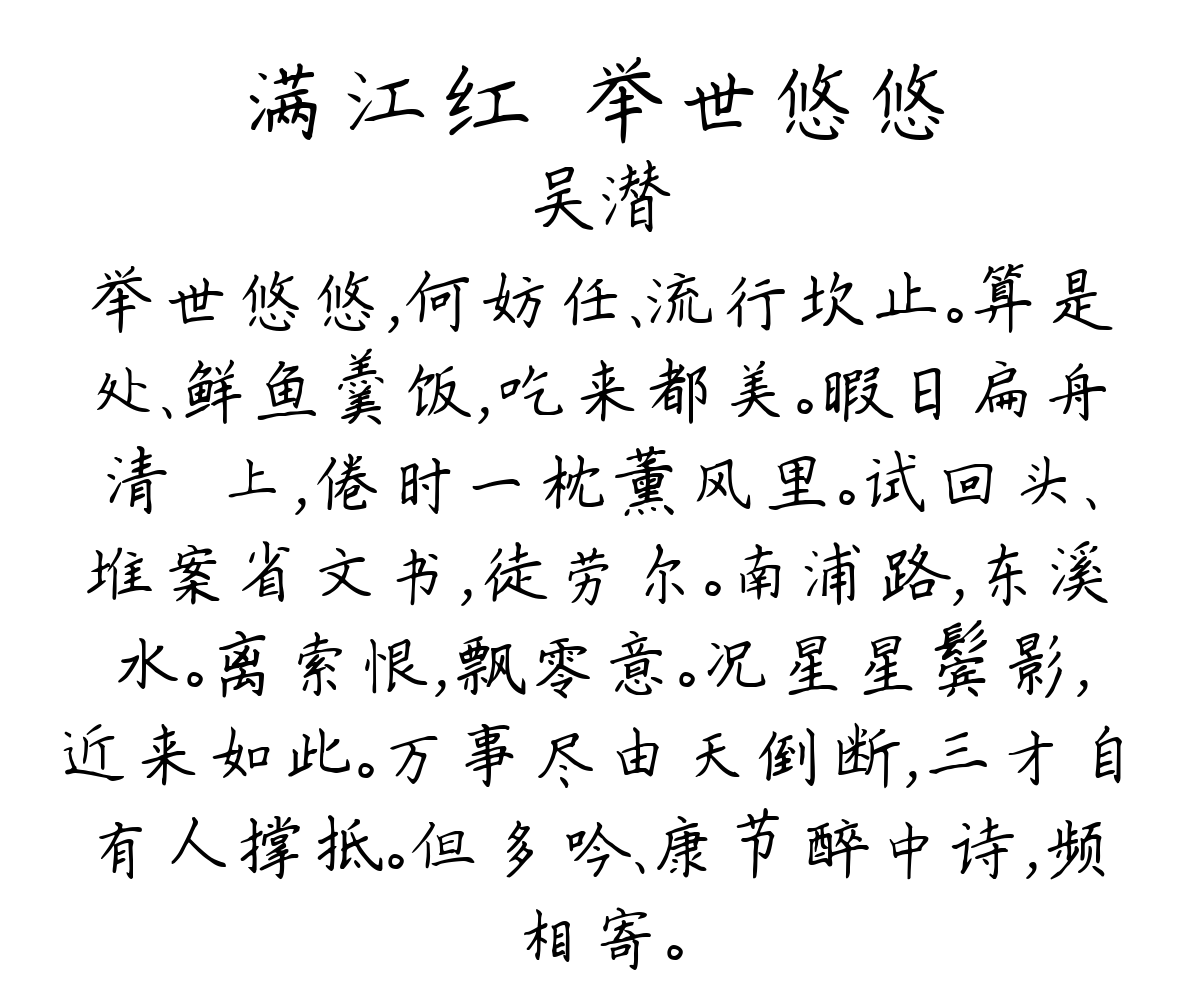 满江红 举世悠悠
吴潜
举世悠悠,何妨任、流行坎止。算是
处、鲜鱼羹饭,吃来都美。暇日扁舟
清 上,倦时一枕薰风里。试回头、
堆案省文书,徒劳尔。南浦路,东溪
水。离索恨,飘零意。况星星鬓影,
近来如此。万事尽由天倒断,三才自
有人撑抵。但多吟、康节醉中诗,频
相寄。